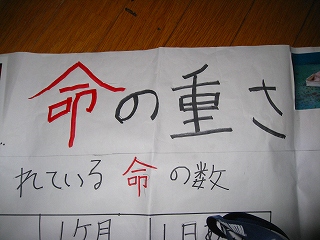 命の重さ
れている命の数
1ヶ月 1日